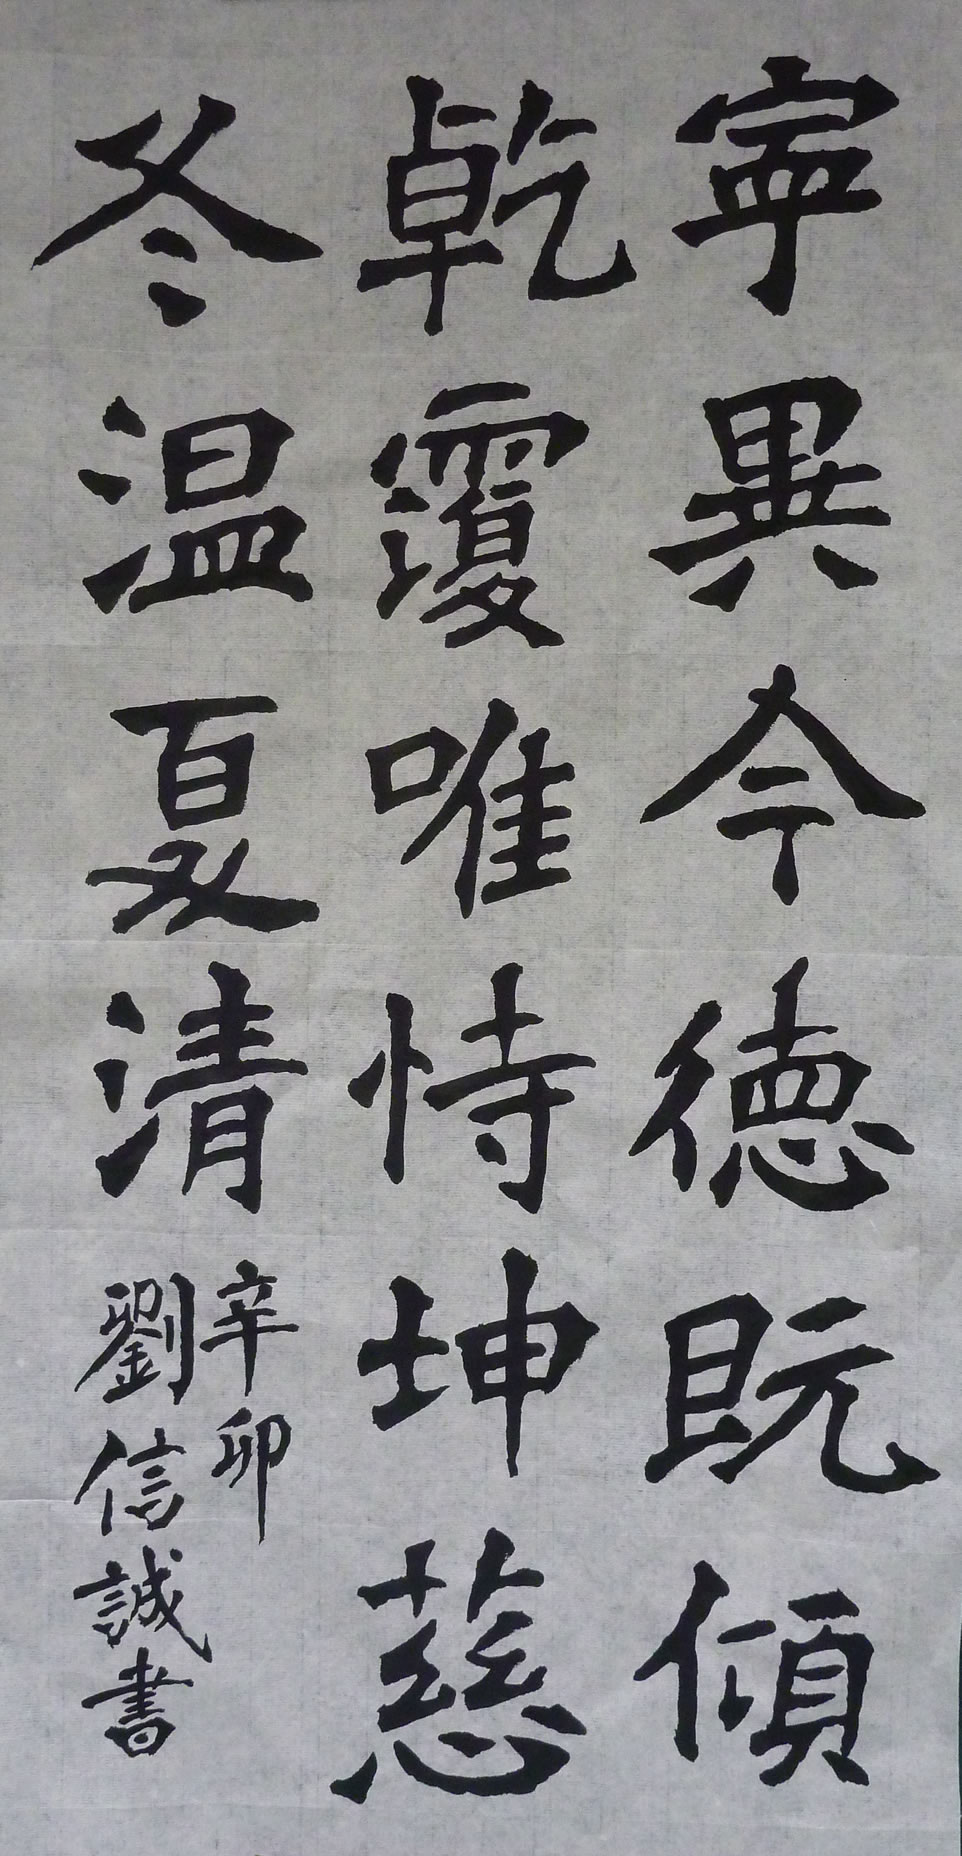 寧異今德既傾
乾覆唯恃坤慈
冬温夏清
辛卯
劉信誠書